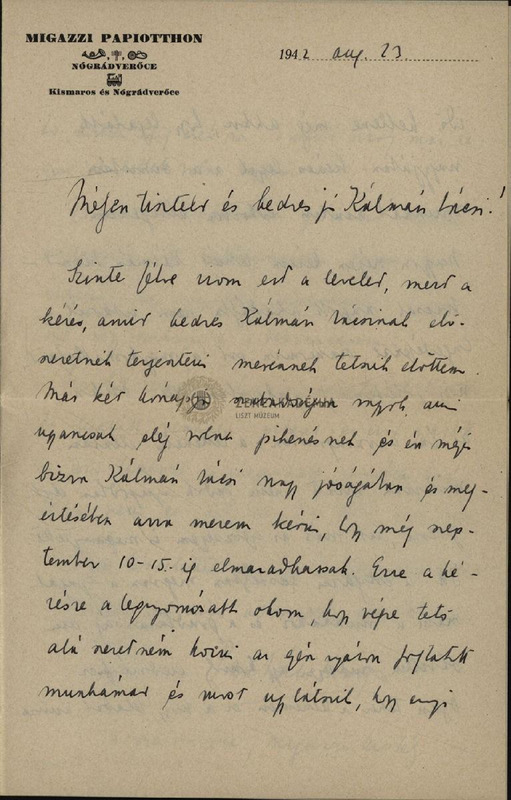 MIGAZZI PAPIOTTHON
NÓGRÁDVERŐCE
Kismaros és Nógrádverőce
1942 aug. 23.
Mélyen tisztelt és kedves jó Kálmán bácsi!
Szinte félve írom ezt a levelet, mert a
kérés, amit kedves Kálmán bácsinak elő
szeretnék terjeszteni merésznek tetszik előttem.
Már két hónapja szabadságon vagyok, ami
ugyancsak elég volna pihenésnek és én mégis
bízva Kálmán bácsi nagy jóságában és meg-
értésében arra merem kérni hogy még szep-
tember 10-15-ig elmaradhassak. Erre a ké-
résre a legnyomósabb okom, hogy végre tető
alá szeretném hozni az egész nyáron folytatott
munkámat és most úgy látszik, hogy ennyi
ZENEAKADÉMIA
LISZT MÚZEUM